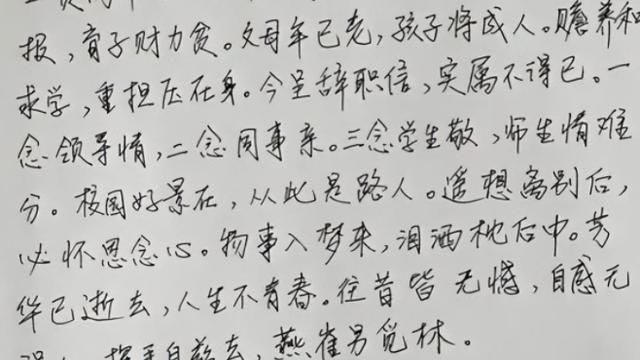 报，育子财力贫。父母年已老，孩子将成人。赡养和
求学，重担压在身。今呈辞职信，实属不得已。一
念领导情，二念同事亲。三念学生敬，师生情难
分。校园好景在，从此是路人。遥想离别后，
必怀思念心。物事入梦来，泪洒枕后中。芳
华已逝去，人生不青春。往昔皆无憾，自感无
挥手自兹去，燕雀另觅林。